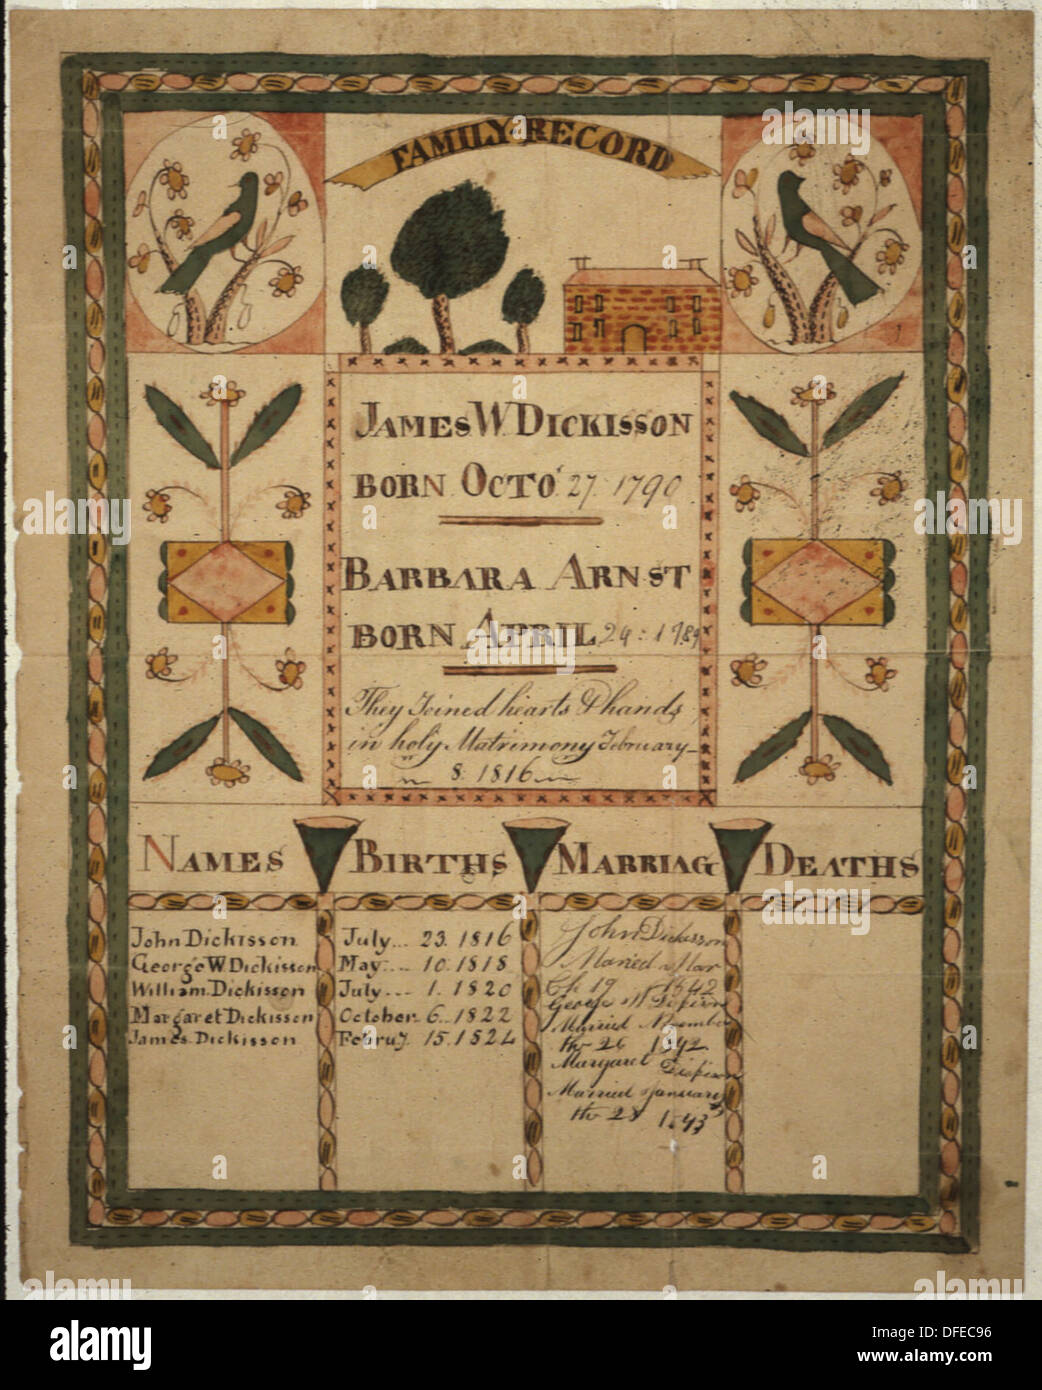 FAMILY RECORD
JAMES W DICKISSON
BORN OCTO 27 1790
BARBARA ARNST
BORN APRIL 24 : 1789
They Joined hearts & hands
in holy Matrimony February
8. 1816
NAMES BIRTHS MARRIAG DEATHS
John Dickisson July... 23. 1816
George W Dickisson May... 10. 1818
William Dickisson July... 1. 1820
Margaret Dickisson October 6. 1822
James Dickisson Febru'y 15. 1824
John Dickisson
Maried Mar
19 1842
George W
Married November
the 26 1842
Margaret
Married January
the 28 1843
alamy
alamy
alamy
Image ID: DFEC96
www.alamy.com